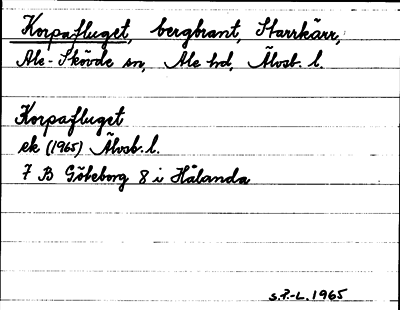 Korpafluget, bergbrant, Starrkärr,
Ale-Skövde sn, Ale hd, Älvsb. l.
Korpafluget
ek (1965) Älvsb. l.
7 B Göteborg 8 i Hålanda
S.P.-L. 1965